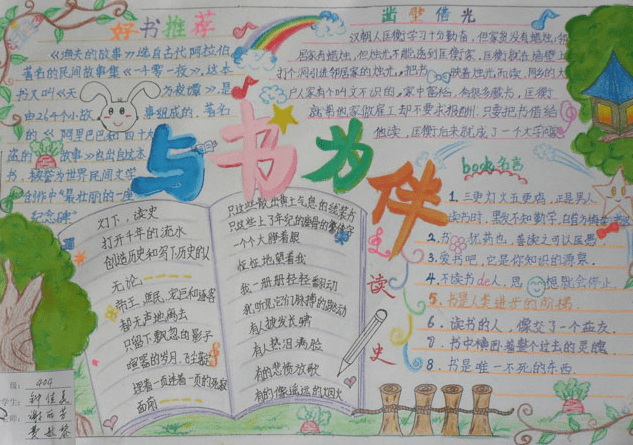 好书推荐
《渔夫的故事》选自古代阿拉伯
著名的民间故事集《一千零一夜》,这本
书又叫《天方夜谭》,是
由264个小故事组成的,著名
的《阿里巴巴和四十大
盗的故事》也出自这本
书,被誉为世界民间文学
创作中"最壮丽的一座
纪念碑"
凿壁借光
汉朝人匡衡学习十分勤奋,但家贫没有蜡烛,邻
居家有蜡烛,但烛光不能透到匡衡家,匡衡就在墙壁上
打个洞引进邻居家的烛光,把书映着烛光而读,同乡的大
户人家有个叫文不识的,家中富裕,有很多藏书,匡衡
就帮他家做雇工却不要求报酬,只要把书借给
他读,匡衡后来就成了一个大学
与书为伴
book名言
1.三更灯火五更鸡,正是男人
读书时,黑发不知勤学
2.书犹药也,善读之可以医愚
3.爱书吧,它是你知识的源泉
4.不读书de人,思想就会停止.
5.书是人类进步的阶梯.
6.读书的人,像交了一个益友.
7.书中横卧着整个过去的灵魂
8.书是唯一不死的东西.
读史
灯下,读史
打开千年的流水
创造历史和写下历史的人
无论:
帝王,庶民,宠臣和逐客
都无声地离去
只留下飘忽的影子
喧嚣的岁月,飞尘散
踩着一页连着一页的
面前
只这些散出黄土气息的线装书
一个大睁着眼
怔怔地望着我
我一册册轻轻翻动
我听见它们脉搏的跳动
有人披发长啸
有人热泪满脸
有的悲愤放歌
有的像遥远的烟火
级:404
学生:
老师: